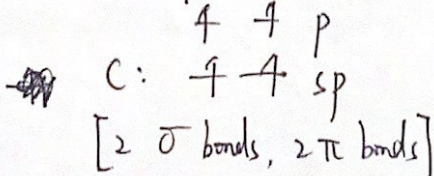 ⥮ ⥮ p
C: ⥮ ⥮ sp
[2 σ bonds, 2 π bonds]